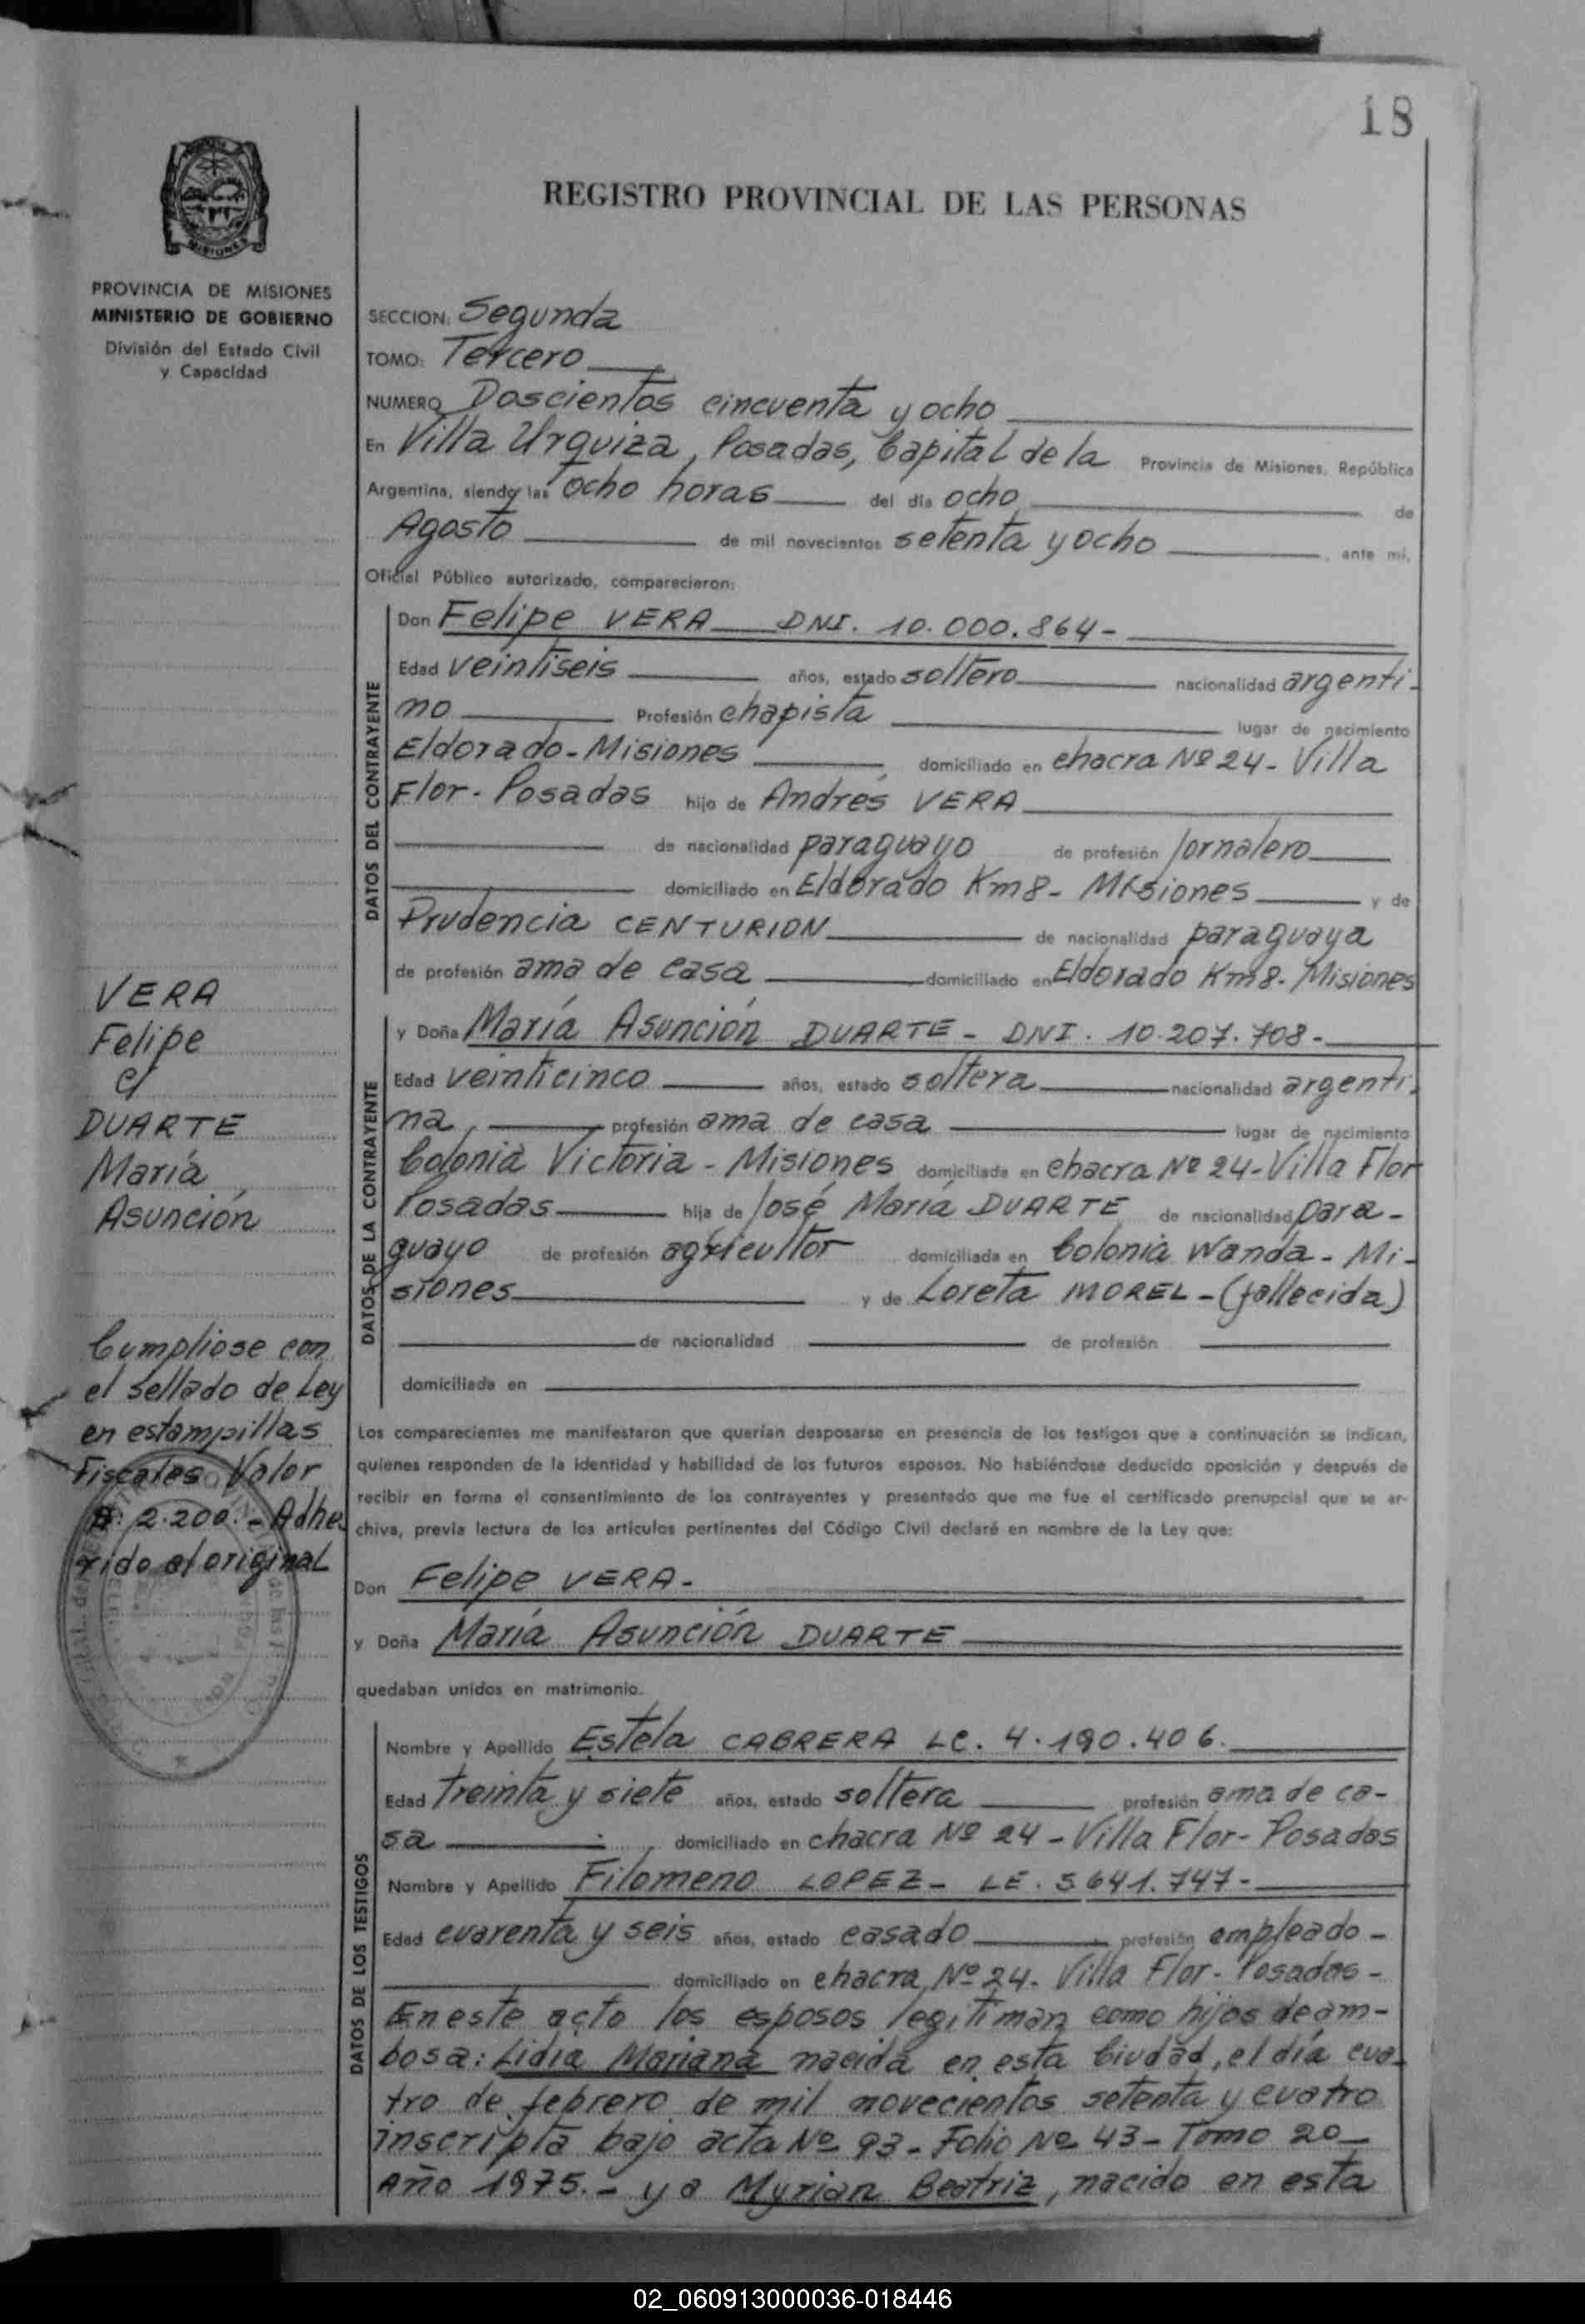 18
REGISTRO PROVINCIAL DE LAS PERSONAS
MISIONES
PROVINCIA DE MISIONES
MINISTERIO DE GOBIERNO
División del Estado Civil
y Capacidad
SECCION: Segunda
TOMO: Tercero
NUMERO Doscientos cincuenta y ocho
En Villa Urquiza, Posadas, Capital de la Provincia de Misiones, República
Argentina, siendo las ocho horas del día ocho de
Agosto de mil novecientos setenta y ocho, ante mí,
Oficial Público autorizado, comparecieron:
DATOS DEL CONTRAYENTE
Don Felipe VERA DNI. 10.000.864-
Edad veintiseis años, estado soltero nacionalidad argenti-
no Profesión chapista lugar de nacimiento
Eldorado-Misiones domiciliado en chacra Nº 24- Villa
Flor- Posadas hijo de Andrés VERA
de nacionalidad paraguayo de profesión Jornalero
domiciliado en Eldorado Km 8- Misiones y de
Prudencia CENTURION de nacionalidad paraguaya
de profesión ama de casa domiciliado en Eldorado Km 8- Misiones
DATOS DE LA CONTRAYENTE
y Doña María Asunción DUARTE- DNI. 10.207.708-
Edad veinticinco años, estado soltera nacionalidad argenti-
na, profesión ama de casa lugar de nacimiento
Colonia Victoria - Misiones domiciliada en chacra Nº 24-Villa Flor
Posadas hija de José María DUARTE de nacionalidad para-
guayo de profesión agricultor domiciliada en Colonia Wanda- Mi-
siones y de Loreta MOREL-(fallecida)
de nacionalidad de profesión
domiciliada en
VERA
Felipe
c/
DUARTE
María
Asunción
Cumpliose con
el sellado de Ley
en estampillas
Fiscales Valor
$: 2.200.- Adhe
rido al original
Los comparecientes me manifestaron que querían desposarse en presencia de los testigos que a continuación se indican,
quienes responden de la identidad y habilidad de los futuros esposos. No habiéndose deducido oposición y después de
recibir en forma el consentimiento de los contrayentes y presentado que me fue el certificado prenupcial que se ar-
chiva, previa lectura de los artículos pertinentes del Código Civil declaré en nombre de la Ley que:
Don Felipe VERA-
y Doña María Asunción DUARTE
quedaban unidos en matrimonio.
DATOS DE LOS TESTIGOS
Nombre y Apellido Estela CABRERA LC. 4.190.406.
Edad treinta y siete años, estado soltera profesión ama de ca-
sa domiciliado en chacra Nº 24-Villa Flor- Posadas
Nombre y Apellido Filomeno LOPEZ- LE. 5641.747-
Edad cuarenta y seis años, estado casado profesión empleado-
domiciliado en chacra Nº 24- Villa Flor- Posadas-
En este acto los esposos legitiman como hijos de am-
bosa: Lidia Mariana nacida en esta Ciudad, el día cua-
tro de febrero de mil novecientos setenta y cuatro
inscripta bajo acta Nº 93- Folio Nº 43- Tomo 20-
Año 1975.- y a Myrian Beatriz, nacido en esta
02_060913000036-018446